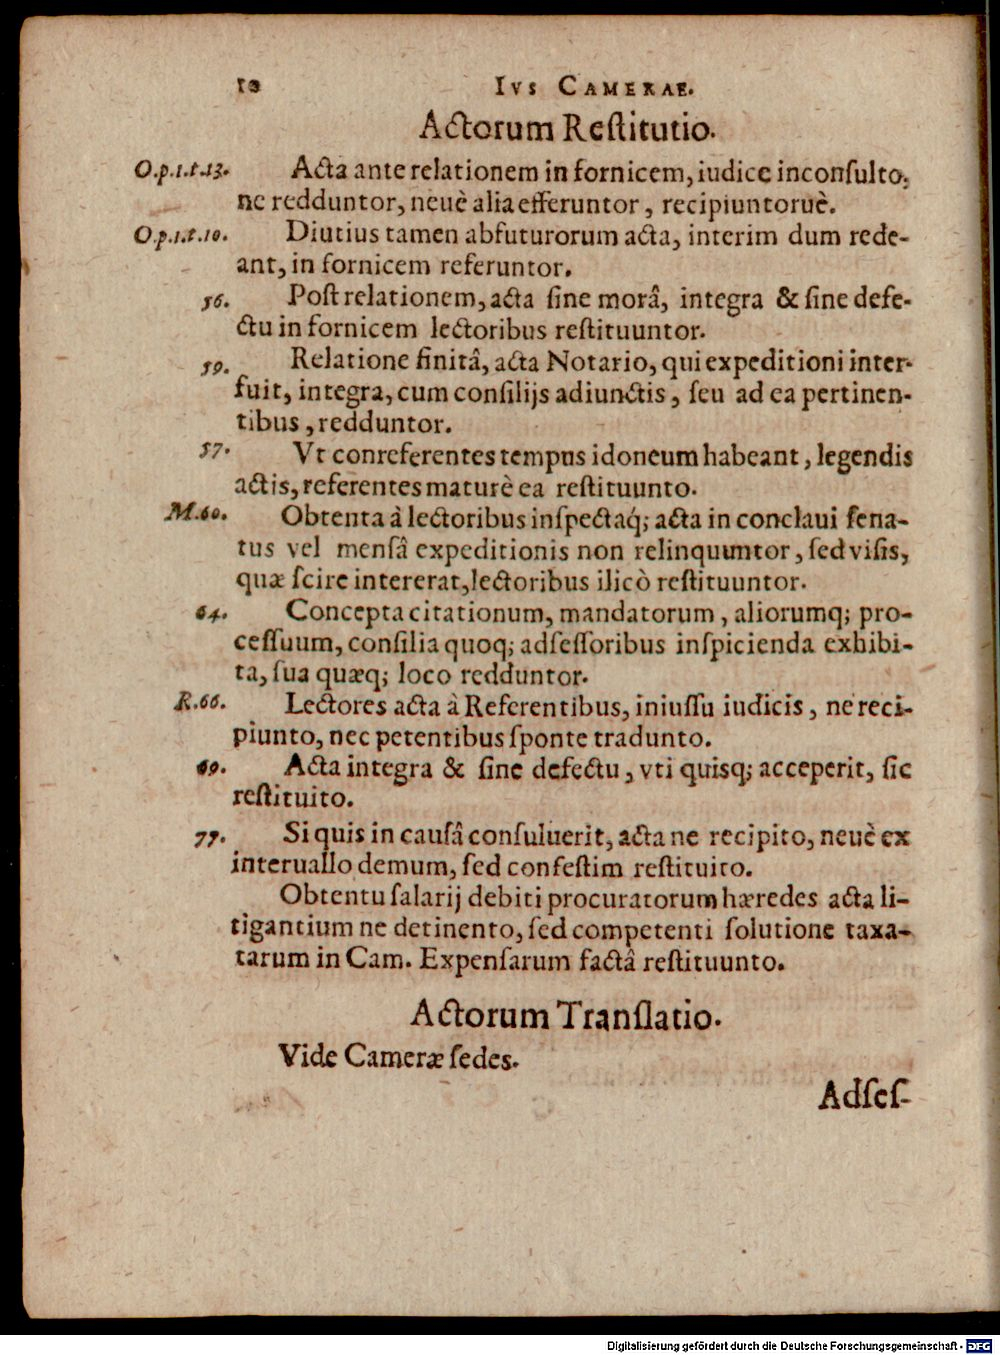 10 IVS CAMERAE.
Actorum Reſtitutio.
O.p.1.t.13. Acta ante relationem in fornicem, iudice inconſulto,
ne redduntor, neuè alia efferuntor, recipiuntoruè.
O.p.1.t.10. Diutius tamen abfuturorum acta, interim dum rede-
ant, in fornicem referuntor.
56. Poſt relationem, acta ſine morâ, integra & ſine defe-
ctu in fornicem lectoribus reſtituuntor.
59. Relatione finitâ, acta Notario, qui expeditioni inter-
fuit, integra, cum conſilijs adiunctis, ſeu ad ea pertinen-
tibus, redduntor.
57. Vt conreferentes tempus idoneum habeant, legendis
actis, referentes maturè ea reſtituunto.
M.60. Obtenta à lectoribus inſpectaq́; acta in conclaui ſena-
tus vel menſâ expeditionis non relinquuntor, ſed viſis,
quæ ſcire intererat, lectoribus ilicò reſtituuntor.
64. Concepta citationum, mandatorum, aliorumq; pro-
ceſſuum, conſilia quoq; adſeſſoribus inſpicienda exhibi-
ta, ſua quæq; loco redduntor.
R.66. Lectores acta à Referentibus, iniuſſu iudicis, ne reci-
piunto, nec petentibus ſponte tradunto.
69. Acta integra & ſine defectu, vti quisq; acceperit, ſic
reſtituito.
77. Si quis in cauſâ conſuluerit, acta ne recipito, neuè ex
interuallo demum, ſed confeſtim reſtituito.
Obtentu ſalarij debiti procuratorum hæredes acta li-
tigantium ne detinento, ſed competenti ſolutione taxa-
tarum in Cam. Expenſarum factâ reſtituunto.
Actorum Tranſlatio.
Vide Cameræ ſedes.
Adſeſ-
Digitalisierung gefördert durch die Deutsche Forschungsgemeinschaft - DFG